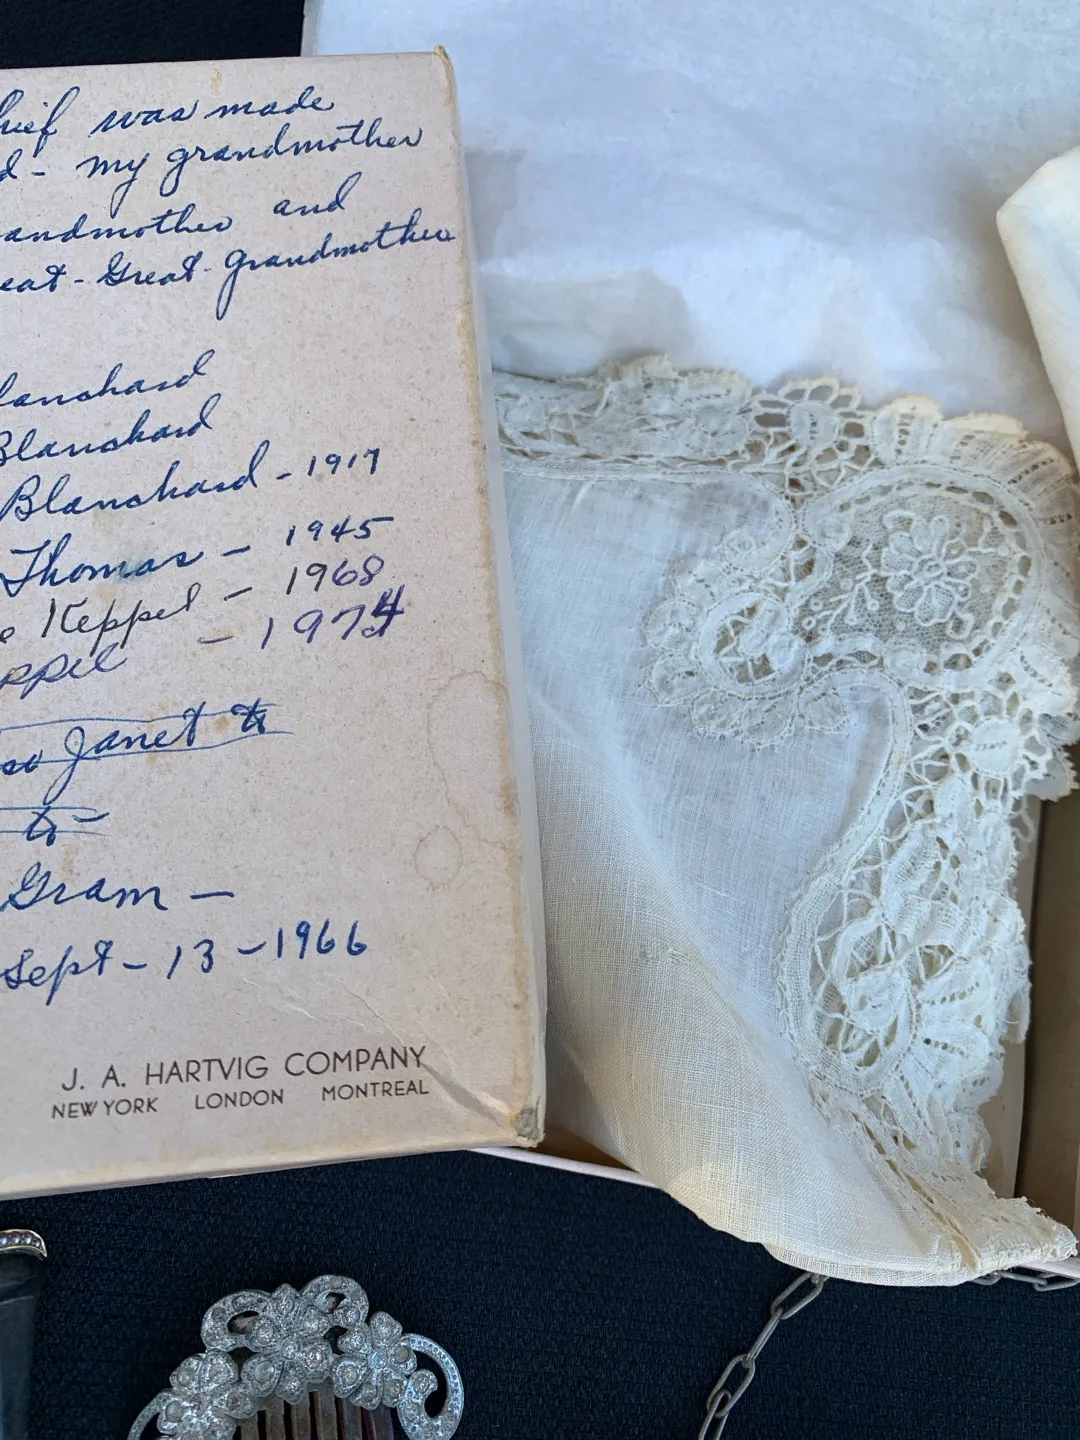 hief was made
d - my grandmother
andmother and
eat - Great - grandmother
lanchard
Blanchard
Blanchard - 1917
Thomas - 1945
e Keppel - 1968
ppel - 1974
Janet to
to -
Gram -
Sept - 13 - 1966
J. A. HARTVIG COMPANY
NEW YORK LONDON MONTREAL